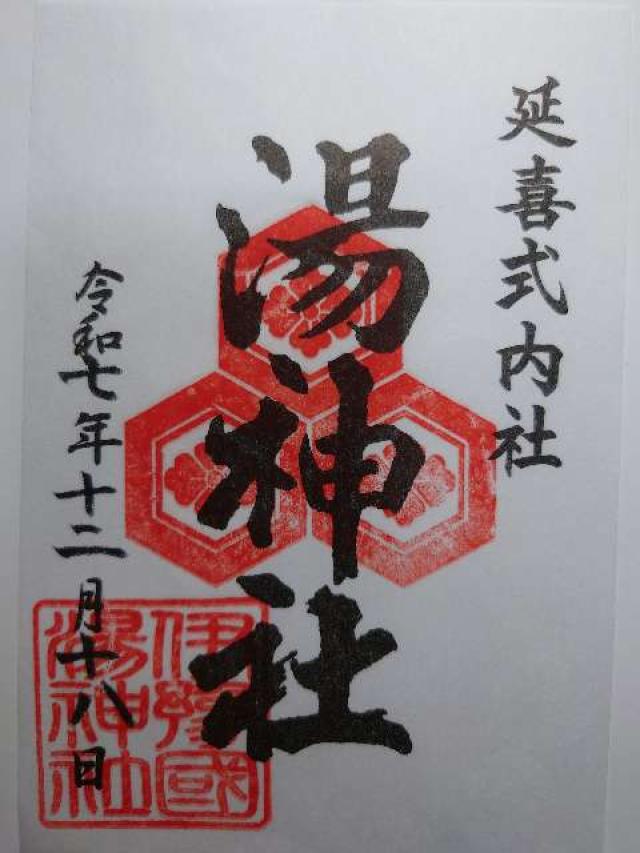 延喜式内社
湯神社
令和七年十二月十八日
伊豫國
湯神社